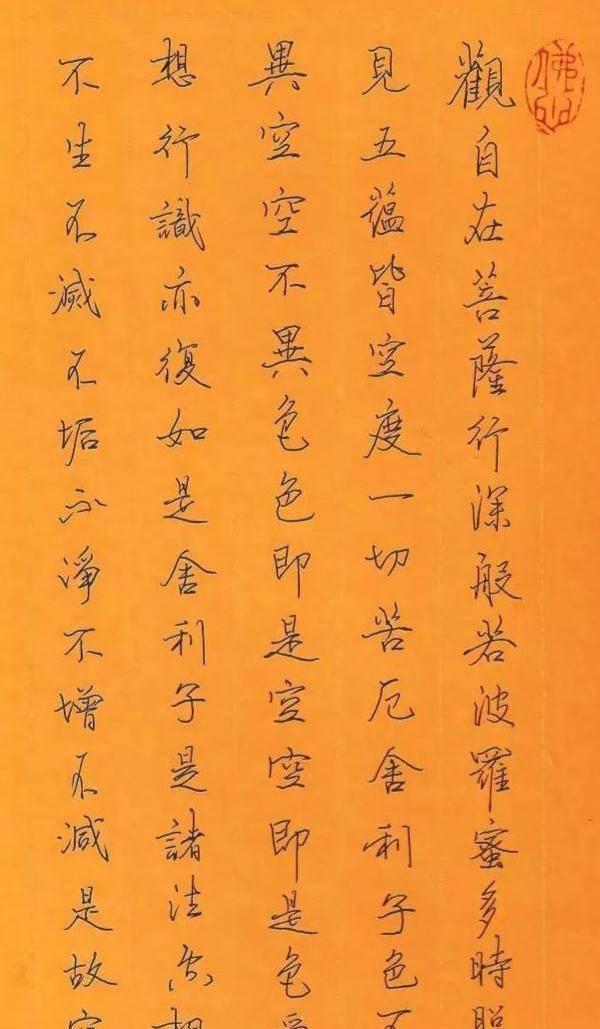 觀自在菩薩行深般若波羅蜜多時照
見五蘊皆空度一切苦厄舍利子色不
異空空不異色色即是空空即是色受
想行識亦復如是舍利子是諸法空相
不生不滅不垢不淨不增不減是故空